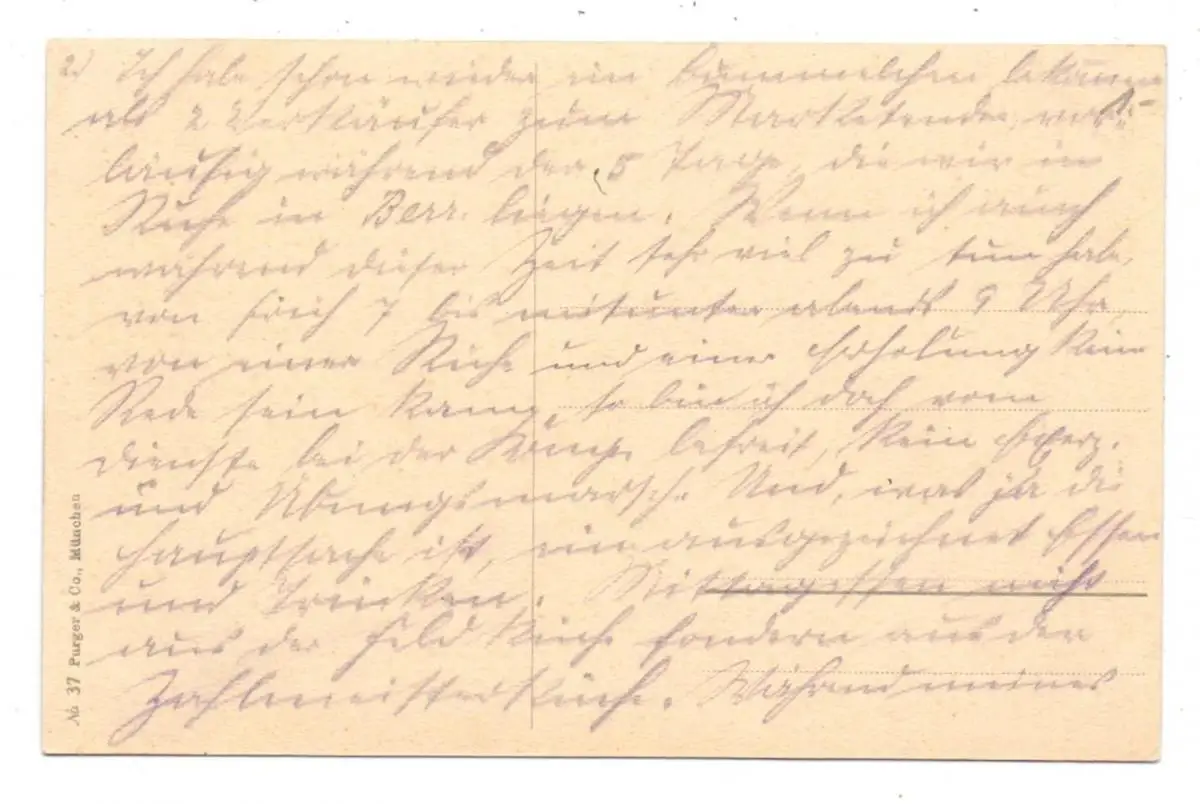 2) Ich habe schon wieder ein bekommen
als 2. Verkäufer zum Marketender, vor-
läufig während der 5 Tage, die wir in
Ruhe in Berr. liegen. Wenn ich auch
während dieser Zeit sehr viel zu tun habe,
von früh 7 bis mitunter abends 9 Uhr,
von einer Ruhe und einer Erholung kein
Rede sein kann, so bin ich doch vom
Dienste bei der Komp. befreit, kein Exerz.
und Übungsmarsch. Und, was ja die
Hauptsache ist, ein ausgezeichnet Essen
und Trinken. Mittagessen nicht
aus der Feldküche sondern aus der
Zahlmeisterküche. Während meines
No 37 Purger & Co., München